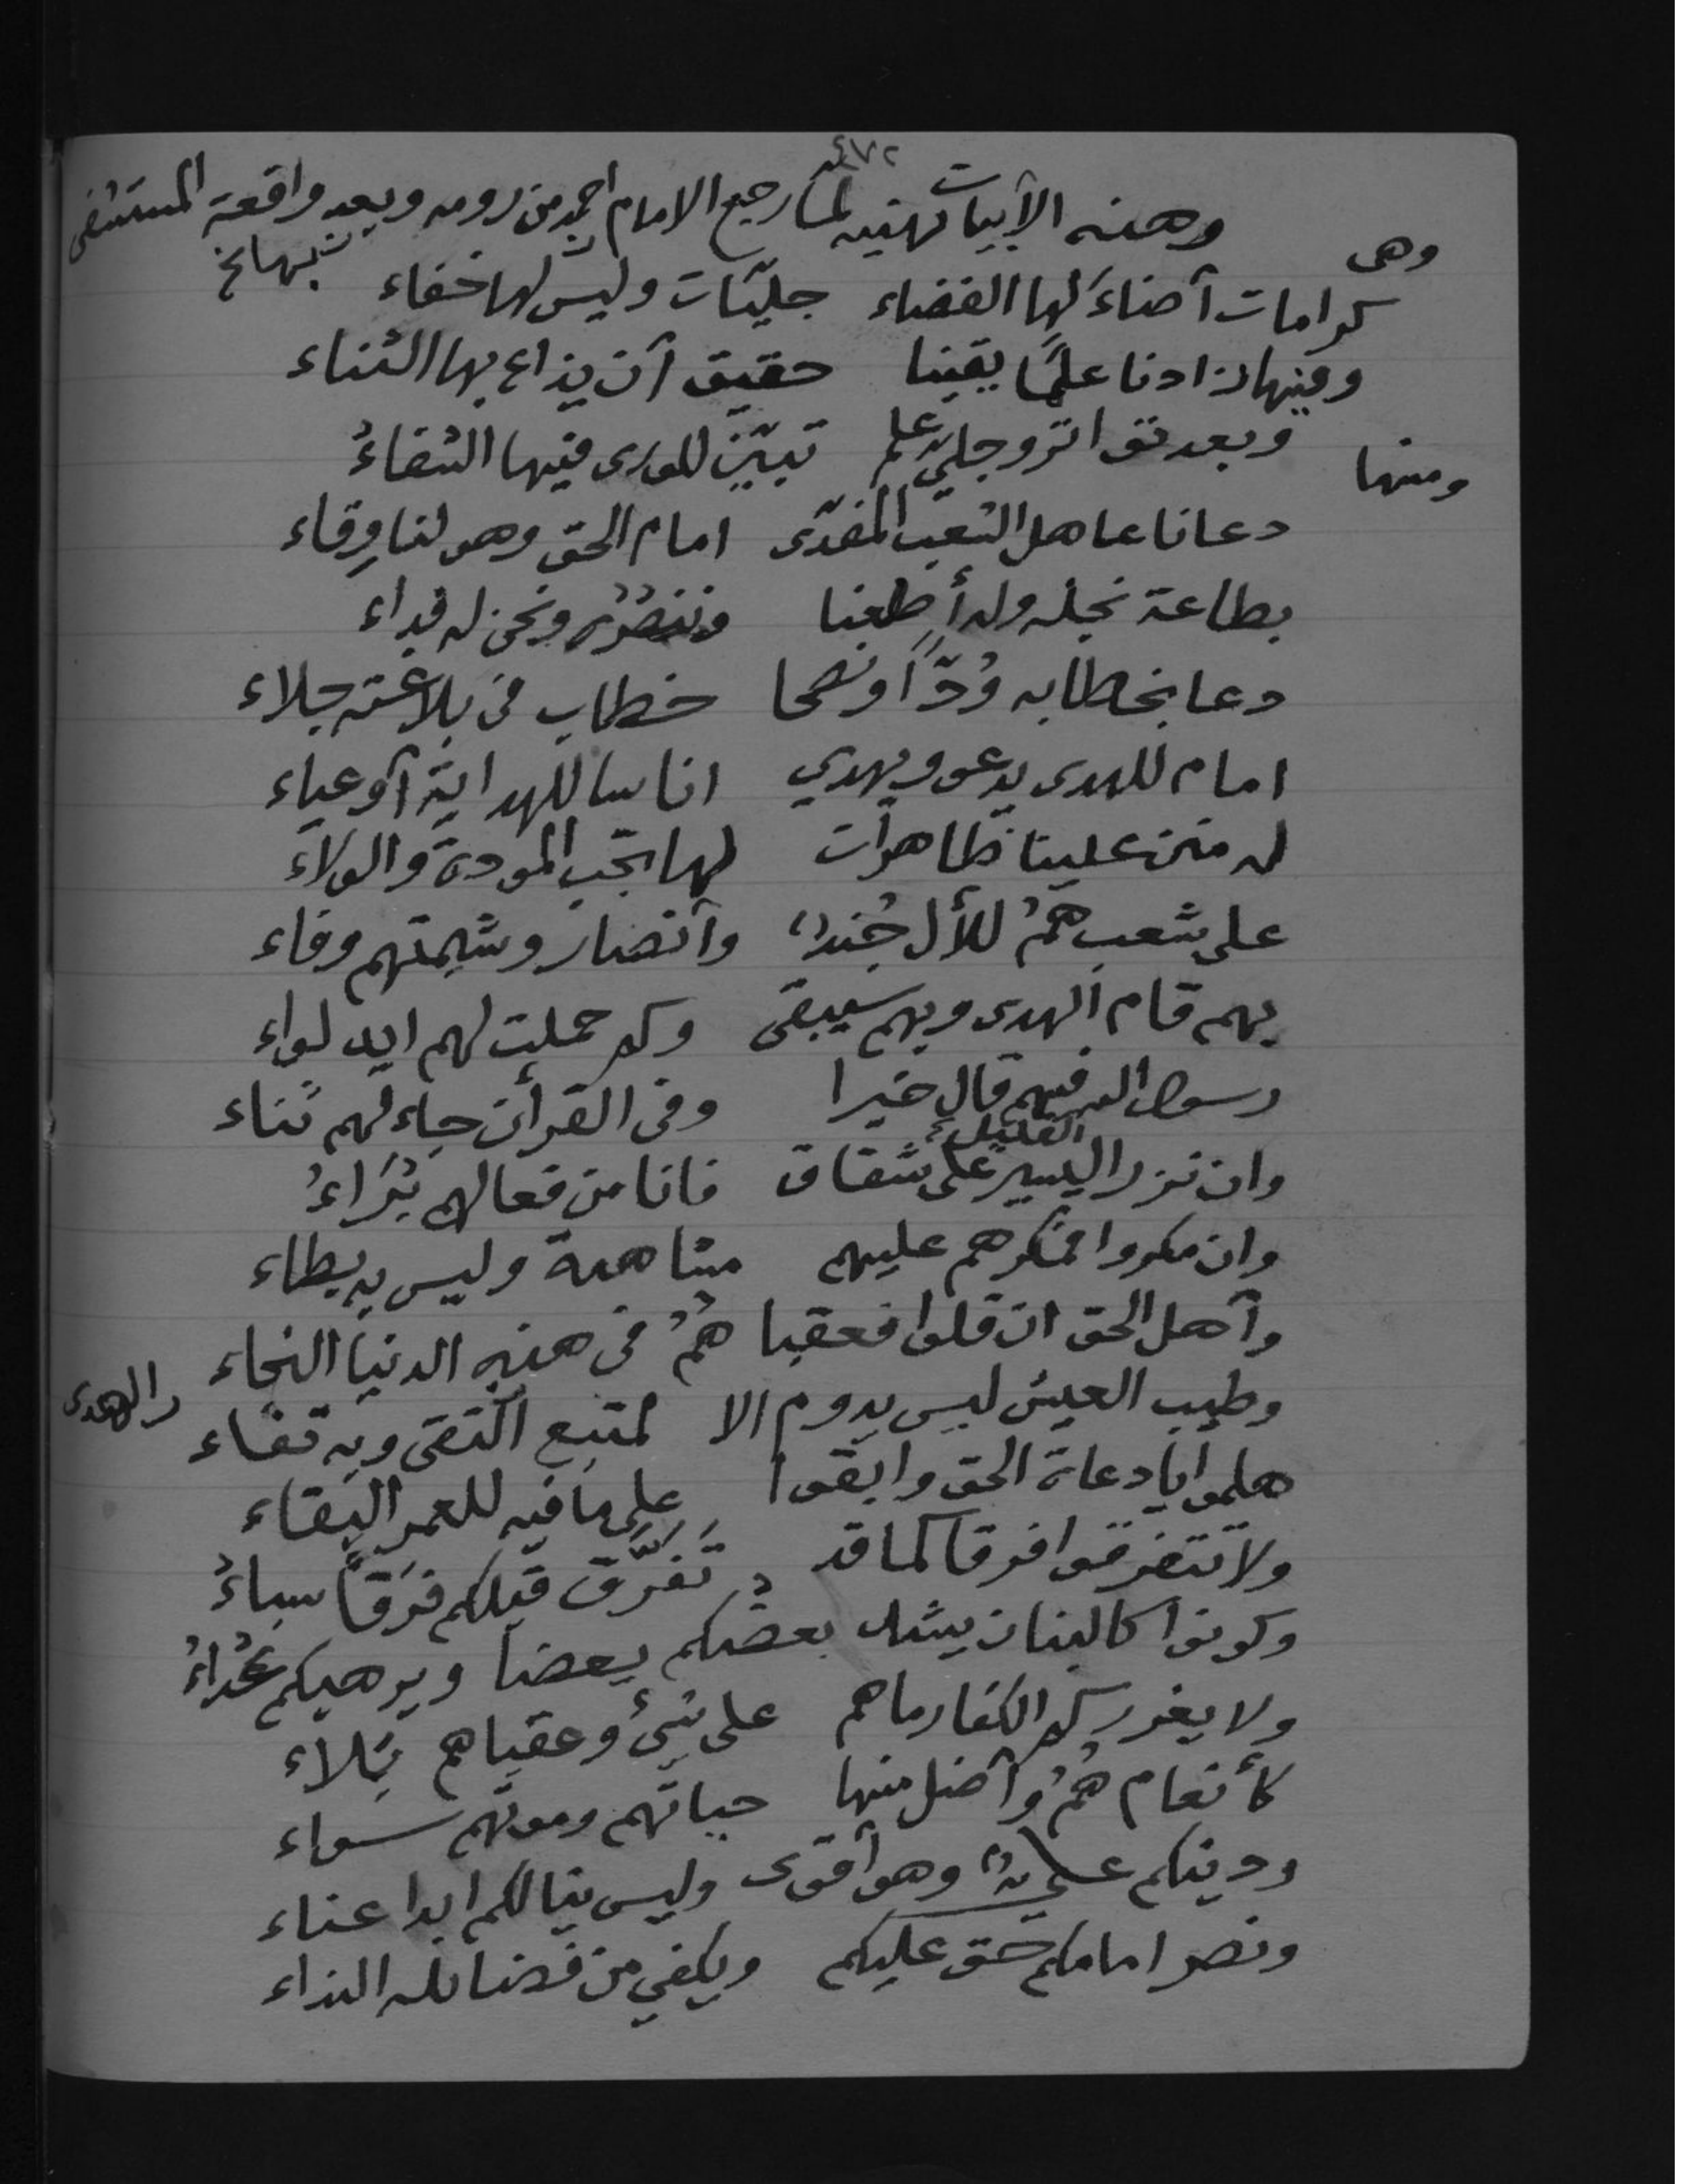 ٤٧٢
وهذه الأبيات تهنيه لما رجع الامام احمد من رومه وبعد واقعة المستشفى
وهي
كرامات أضاءَ لها الفضاء جليّات وليس لها خفاء
وفيها زادنا علمًا يقينا حقيق أن يذاع بها الثناء
ومنها وبعد تواتر وجليّ علم تبيّن للورى فيها الشفاءُ
دعانا عاهل الشعب المفدّى امام الحق وهو لنا وِقاء
بطاعة نجله وله أطعنا وننصُرُه ونحن له فداء
دعا بخطابه وُدّاً ونصحا خطاب في بلاغته جلاء
امام للهدى يدعو ويهدي اناسا للهداية أوعياء
له منن علينا ظاهرات لها تجب المودة والولاَء
على شعب همُ للأل جُندٌ وأنصار وشيمتهم وفاء
بهم قام الهدى وبهم سيبقى وكم حملت لهم ايد لواء
رسول الله فيهم قال خيرا وفى القرأن جاء لهم ثناء
وان نزر اليسير القليل على شقاق فانا من فعالهم بُرَاءُ
وان مكروا فمكرهم عليهم مشاهدة وليس به بطاء
وأهل الحق ان قلوا فعقبا همُ في هذه الدنيا النجاء
وطيب العيش ليس يدوم الا لمتبع التقى وبه تقاء
والهدى
هلموا يا دعاة الحق وابقوا على ما فيه للعمر البقاء
ولا تتفرقوا فرقا كما قد تَفَرَّقَ قبلكم فِرَقاً سباءُ
وكونوا كالبنان يشد بعضكم بعضا ويرهبكم عُداءُ
ولا يغرركم الكفار ماهم على شئ وعقباهم بَلاء
كأنعام همُ وأضل منها حياتهم وموتهم سواء
ودينكم علي وهو أقوى وليس ينالكم ابدا عناء
ونصر امامكم حق عليكم ويكفي من فضائله النداء